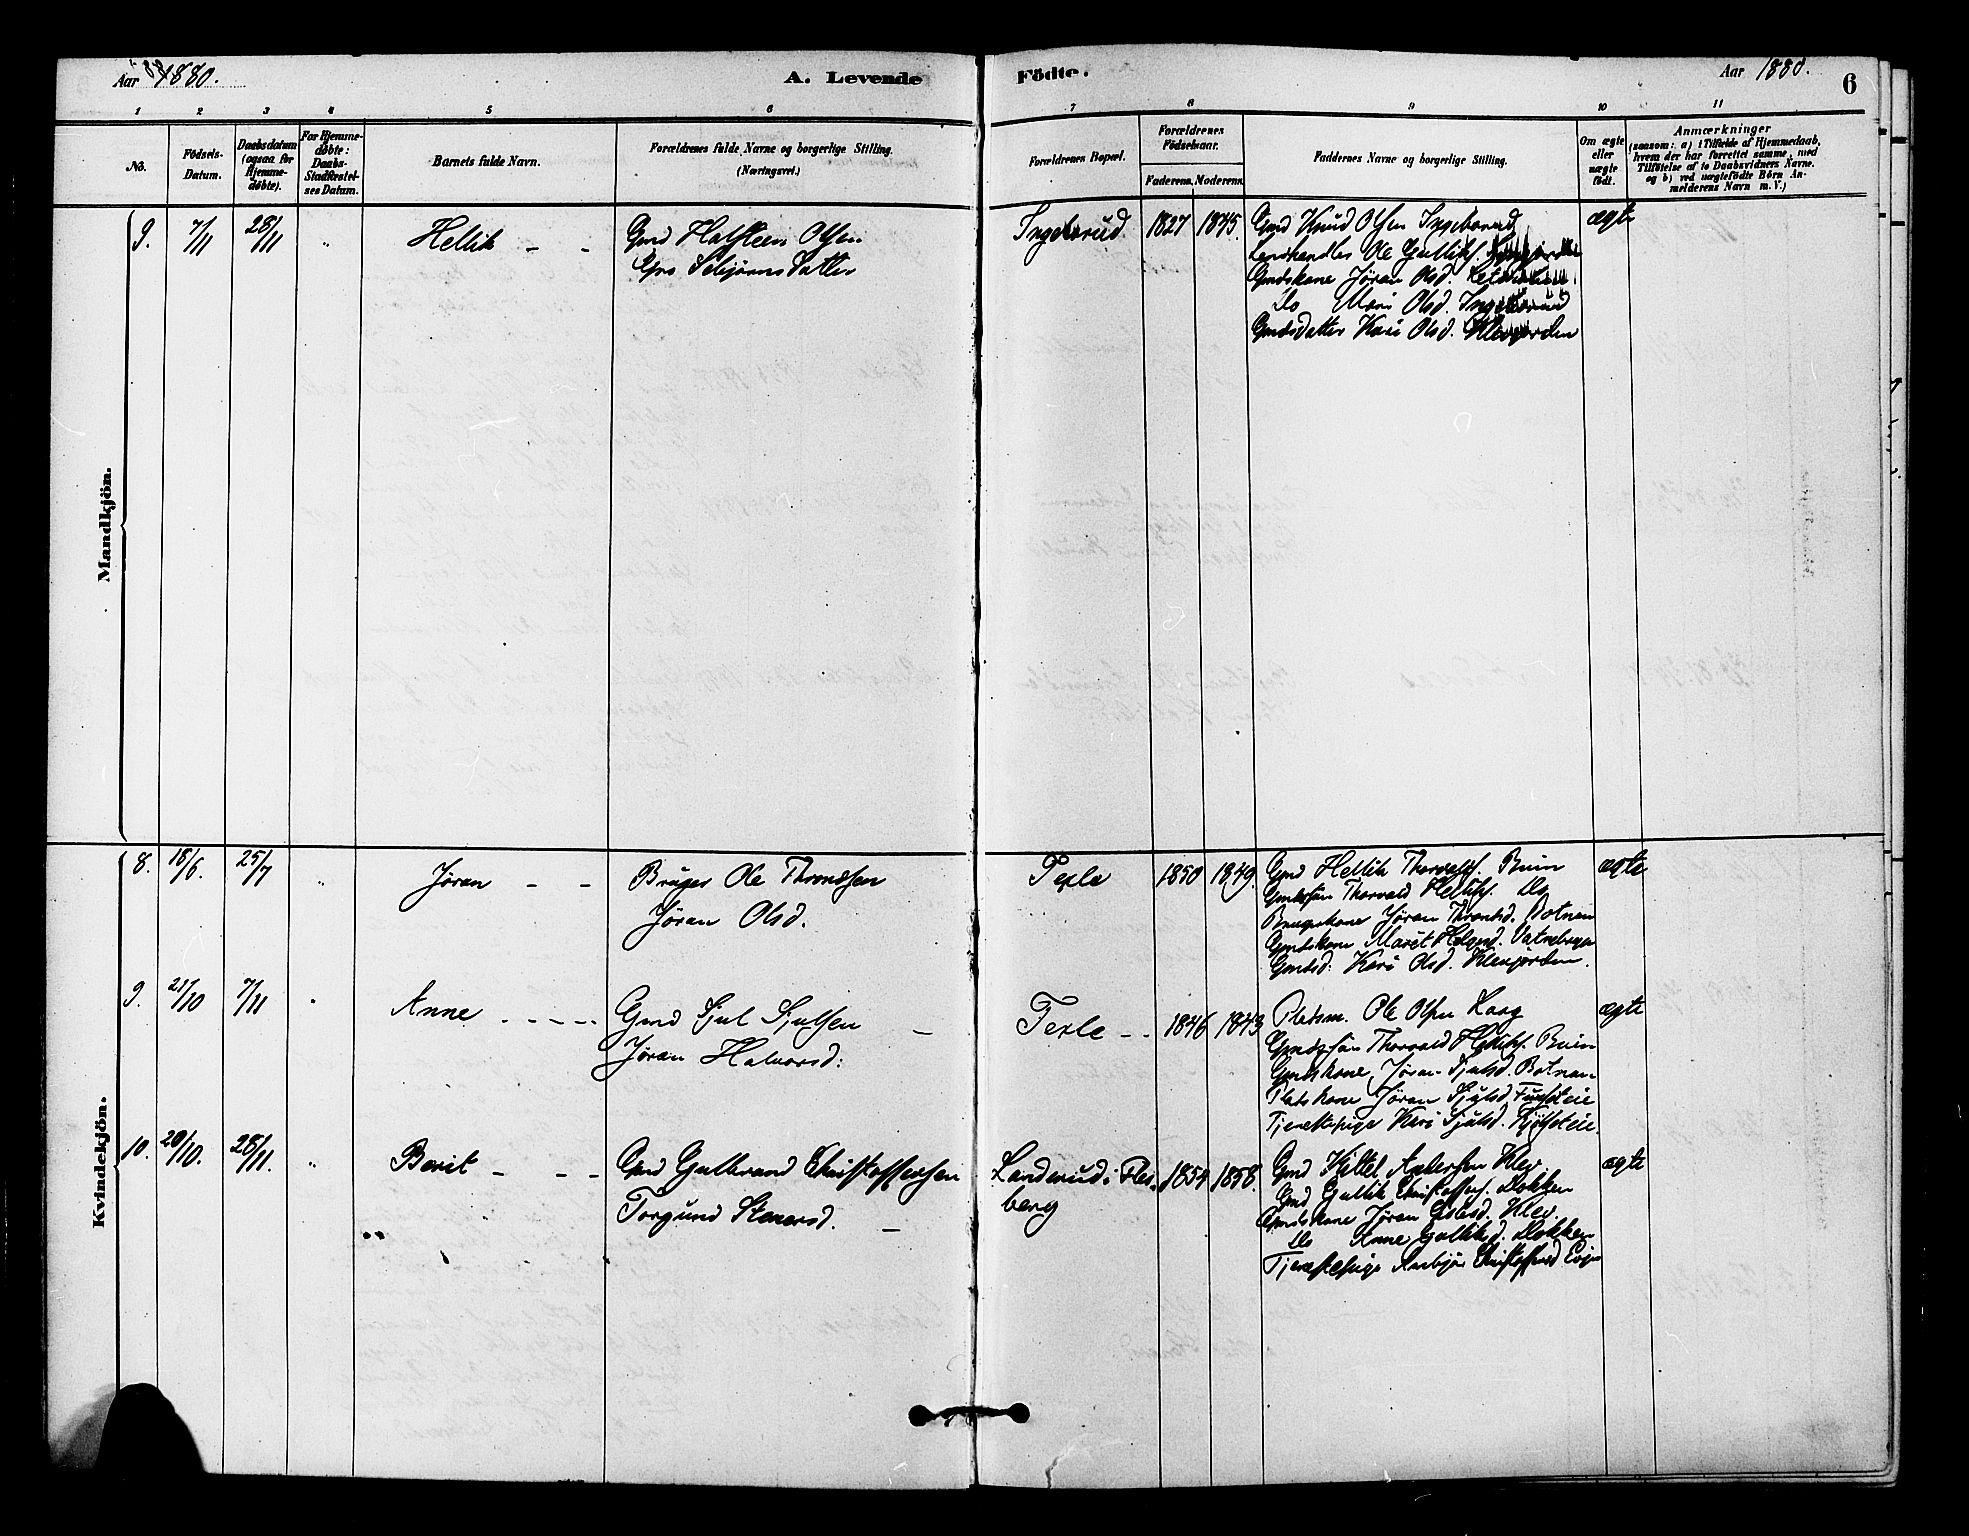 Aar 1880.
A. Levende Födte.
Aar 1880.
6
1 2 3 4 5 6 7 8 9 10 11
No.
Födsels-Datum.
Daabsdatum (ogsaa for Hjemmedøbte).
For Hjemmedøbte: Daabs-Stadfæstelses Datum.
Barnets fulde Navn.
Forældrenes fulde Navne og borgerlige Stilling. (Næringsvei.)
Forældrenes Bopæl.
Forældrenes Födselsaar.
Faderens. Moderens.
Faddernes Navne og borgerlige Stilling.
Om ægte eller uægte födt.
Anmærkninger
(saasom: a) i Tilfælde af Hjemmedaab, hvem der har forrettet samme, med Tilföielse af to Daabsvidners Navne, og b) ved uægtefödte Börn Anmelderens Navn m. V.)
Mandkjön.
9. 7/11 28/11 " Hellik - - Gmd Halsteen Olsen Ingeborrud 1827 1845. Gmd Knud Olsen Ingeborrud ægte
Landhandler Ole Gulliks.
Gmdskone Jøran Olsd.
Do Mari Olsd. Ingeborrud
Gmdsdatter Kari Olsd. Klevjorden
Kvindekjön.
8. 18/6. 25/7 " Jøran - - Bruger Ole Throndsen Texle 1850 1849. Gmd Hellik Thorvalds. Buin ægte
Jøran Olsd. Gmdssøn Thorvald Helliks. Do
Brugerkone Jøran Throndsd. Botnen
Gmdskone Marit Helgesd.
Gmdsd: Kari Olsd. Klevjorden.
9. 21/10 7/11 " Anne - - - - Gmd Sjul Sjulsen - Texle - - 1846 1843 Pladsm. Ole Olsen Haag ægte
Jøran Halvorsd: Gmdssøn Thorvald Helliks. Buin
Gmdskone Jøran Sjulsd. Botnen
Pladskone Jøran Sjulsd.
Tjenestepige Kari Sjulsd.
10. 20/10. 28/11. " Berit - - - Gmd Gulbrand Christoffersen Landerud i Flesberg 1854 1858. Gmd Kittel Andersen Klev ægte
Torgund Stenersd. - Gmd Gullik Christoffers. Dokken
Gmdskone Jøran Klev.
Do Anne Gulliksd. Dokken
Tjenestepige Anbjør Christoffersd